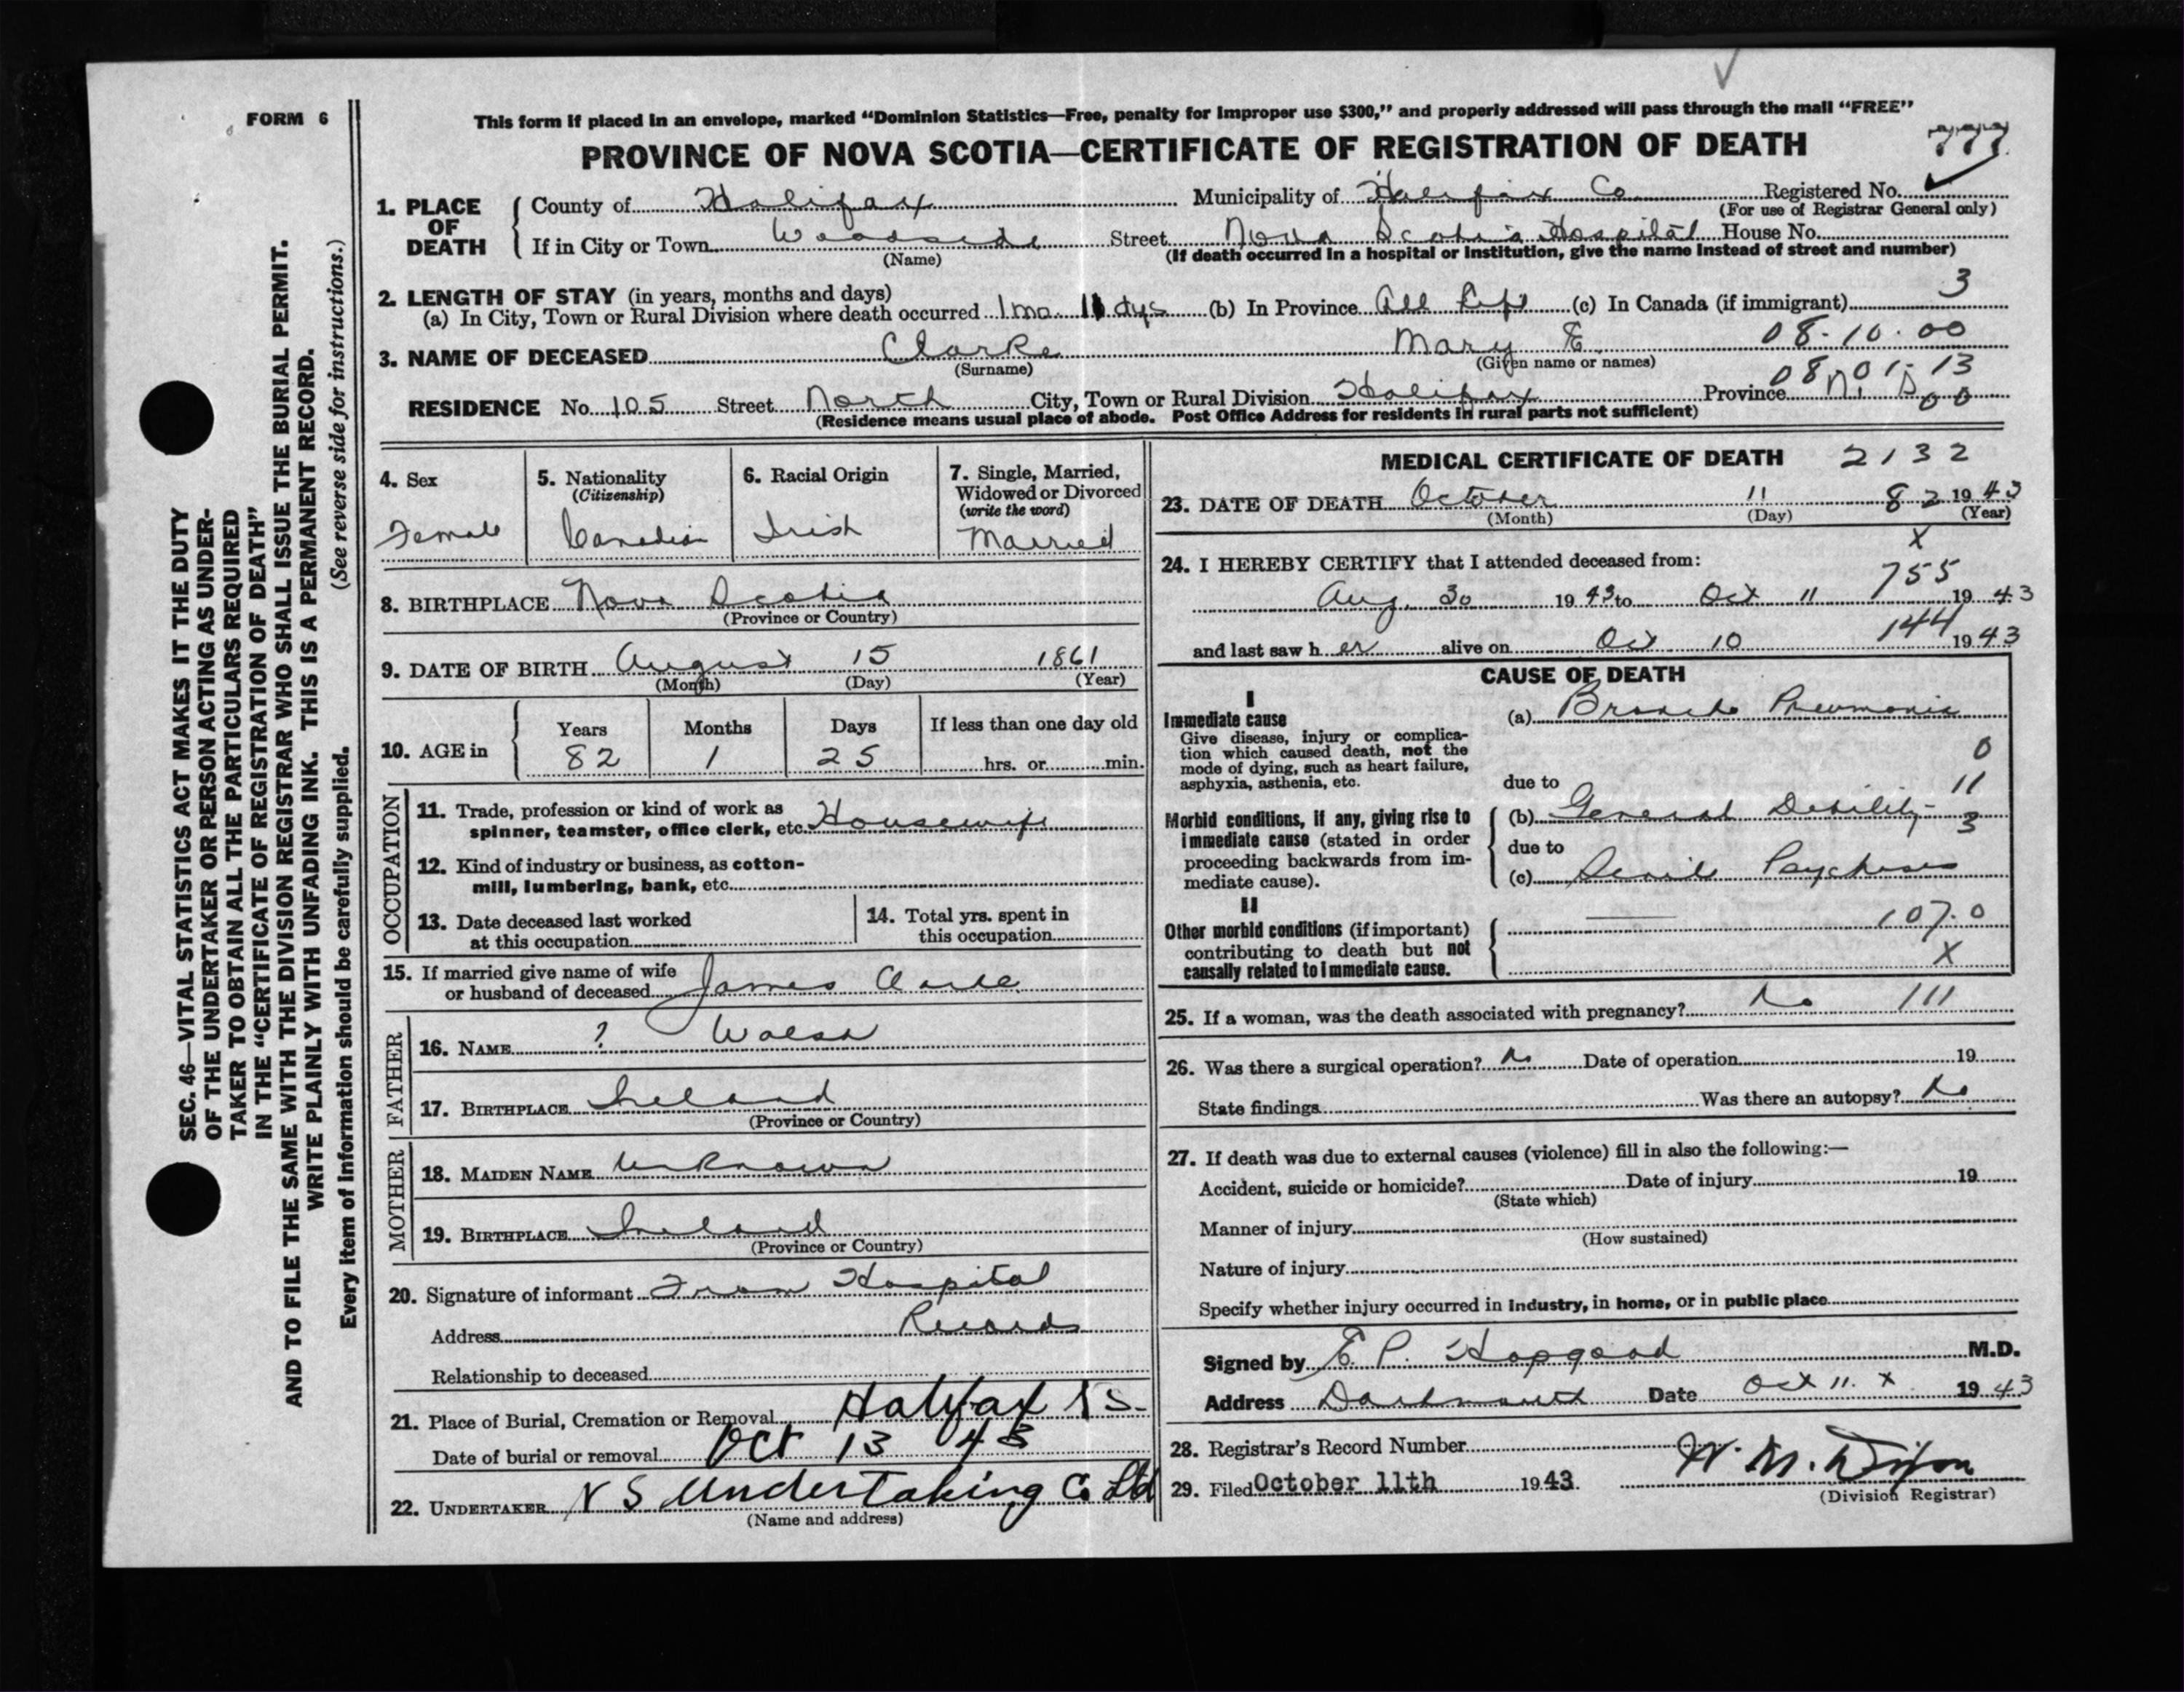 FORM 6
This form if placed in an envelope, marked "Dominion Statistics—Free, penalty for improper use $300," and properly addressed will pass through the mail "FREE"
PROVINCE OF NOVA SCOTIA—CERTIFICATE OF REGISTRATION OF DEATH 777
SEC. 46—VITAL STATISTICS ACT MAKES IT THE DUTY
OF THE UNDERTAKER OR PERSON ACTING AS UNDER-
TAKER TO OBTAIN ALL THE PARTICULARS REQUIRED
IN THE "CERTIFICATE OF REGISTRATION OF DEATH"
AND TO FILE THE SAME WITH THE DIVISION REGISTRAR WHO SHALL ISSUE THE BURIAL PERMIT.
WRITE PLAINLY WITH UNFADING INK. THIS IS A PERMANENT RECORD.
Every item of information should be carefully supplied. (See reverse side for instructions.)
1. PLACE OF DEATH
County of Halifax Municipality of Halifax Co. Registered No.
(For use of Registrar General only)
If in City or Town Woodside Street Nova Scotia Hospital House No.
(Name) (If death occurred in a hospital or institution, give the name instead of street and number)
2. LENGTH OF STAY (in years, months and days) 3
(a) In City, Town or Rural Division where death occurred 1 mo. 11 dys (b) In Province All Life (c) In Canada (if immigrant)
3. NAME OF DECEASED Clarke Mary E. 08-10-00
(Surname) (Given name or names) 08 01-13
RESIDENCE No. 105 Street North City, Town or Rural Division Halifax Province N. S. 00
(Residence means usual place of abode. Post Office Address for residents in rural parts not sufficient)
4. Sex
Female
5. Nationality
(Citizenship)
Canadian
6. Racial Origin
Irish
7. Single, Married,
Widowed or Divorced
(write the word)
Married
8. BIRTHPLACE Nova Scotia
(Province or Country)
9. DATE OF BIRTH August 15 1861
(Month) (Day) (Year)
10. AGE in
Years Months Days If less than one day old
82 1 25 hrs. or min.
OCCUPATION
11. Trade, profession or kind of work as
spinner, teamster, office clerk, etc. Housewife
12. Kind of industry or business, as cotton-
mill, lumbering, bank, etc.
13. Date deceased last worked
at this occupation
14. Total yrs. spent in
this occupation
15. If married give name of wife
or husband of deceased James Clarke
FATHER
16. NAME ? Walsh
17. BIRTHPLACE Ireland
(Province or Country)
MOTHER
18. MAIDEN NAME Unknown
19. BIRTHPLACE Ireland
(Province or Country)
20. Signature of informant From Hospital
Address Records
Relationship to deceased
21. Place of Burial, Cremation or Removal Halifax N S.
Date of burial or removal Oct 13 43
22. UNDERTAKER N S Undertaking Co Ltd
(Name and address)
MEDICAL CERTIFICATE OF DEATH 2132
23. DATE OF DEATH October 11 82 1943
(Month) (Day) (Year)
X
24. I HEREBY CERTIFY that I attended deceased from:
755
Aug. 30 1943 to Oct 11 1943
144
and last saw her alive on Oct 10 1943
CAUSE OF DEATH
I
Immediate cause
Give disease, injury or complica-
tion which caused death, not the
mode of dying, such as heart failure,
asphyxia, asthenia, etc.
(a) Broncho Pneumonia
0
due to 11
Morbid conditions, if any, giving rise to
immediate cause (stated in order
proceeding backwards from im-
mediate cause).
(b) General Debility 3
due to
(c) Senile Psychosis
II
Other morbid conditions (if important)
contributing to death but not
causally related to immediate cause.
107.0
X
25. If a woman, was the death associated with pregnancy? No 111
26. Was there a surgical operation? No Date of operation 19
State findings Was there an autopsy? No
27. If death was due to external causes (violence) fill in also the following:—
Accident, suicide or homicide? Date of injury 19
(State which)
Manner of injury
(How sustained)
Nature of injury
Specify whether injury occurred in industry, in home, or in public place
Signed by E. P. Hopgood M.D.
Address Dartmouth Date Oct 11. X 1943
28. Registrar's Record Number
29. Filed October 11th 1943. W. M. Dixon
(Division Registrar)